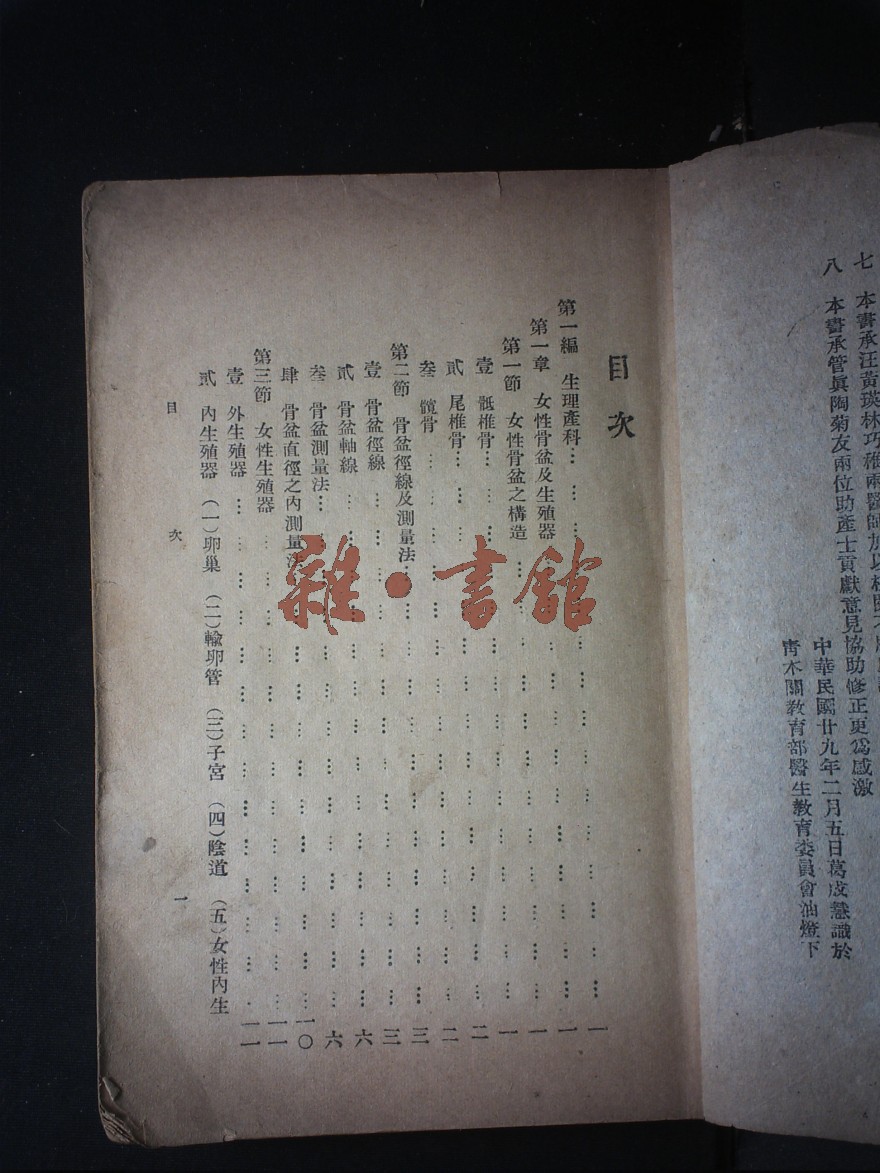 七　本書承汪黃瑛林巧稚兩醫師加以校閱
八　本書承管真陶菊友兩位助產士貢獻意見協助修正更為感激
中華民國廿九年二月五日葛成慧識於
青木關教育部醫生教育委員會油燈下
目次
第一編　生理產科…………一
第一章　女性骨盆及生殖器…………一
第一節　女性骨盆之構造…………一
壹　骶椎骨…………二
貳　尾椎骨…………二
叁　髖骨…………三
第二節　骨盆徑線及測量法…………三
壹　骨盆徑線…………六
貳　骨盆軸線…………六
叁　骨盆測量法…………
肆　骨盆直徑之內測量法…………一〇
第三節　女性生殖器…………一一
壹　外生殖器…………一一
貳　內生殖器　(一)卵巢　(二)輸卵管　(三)子宮　(四)陰道　(五)女性內生
目次　一
雜·書館